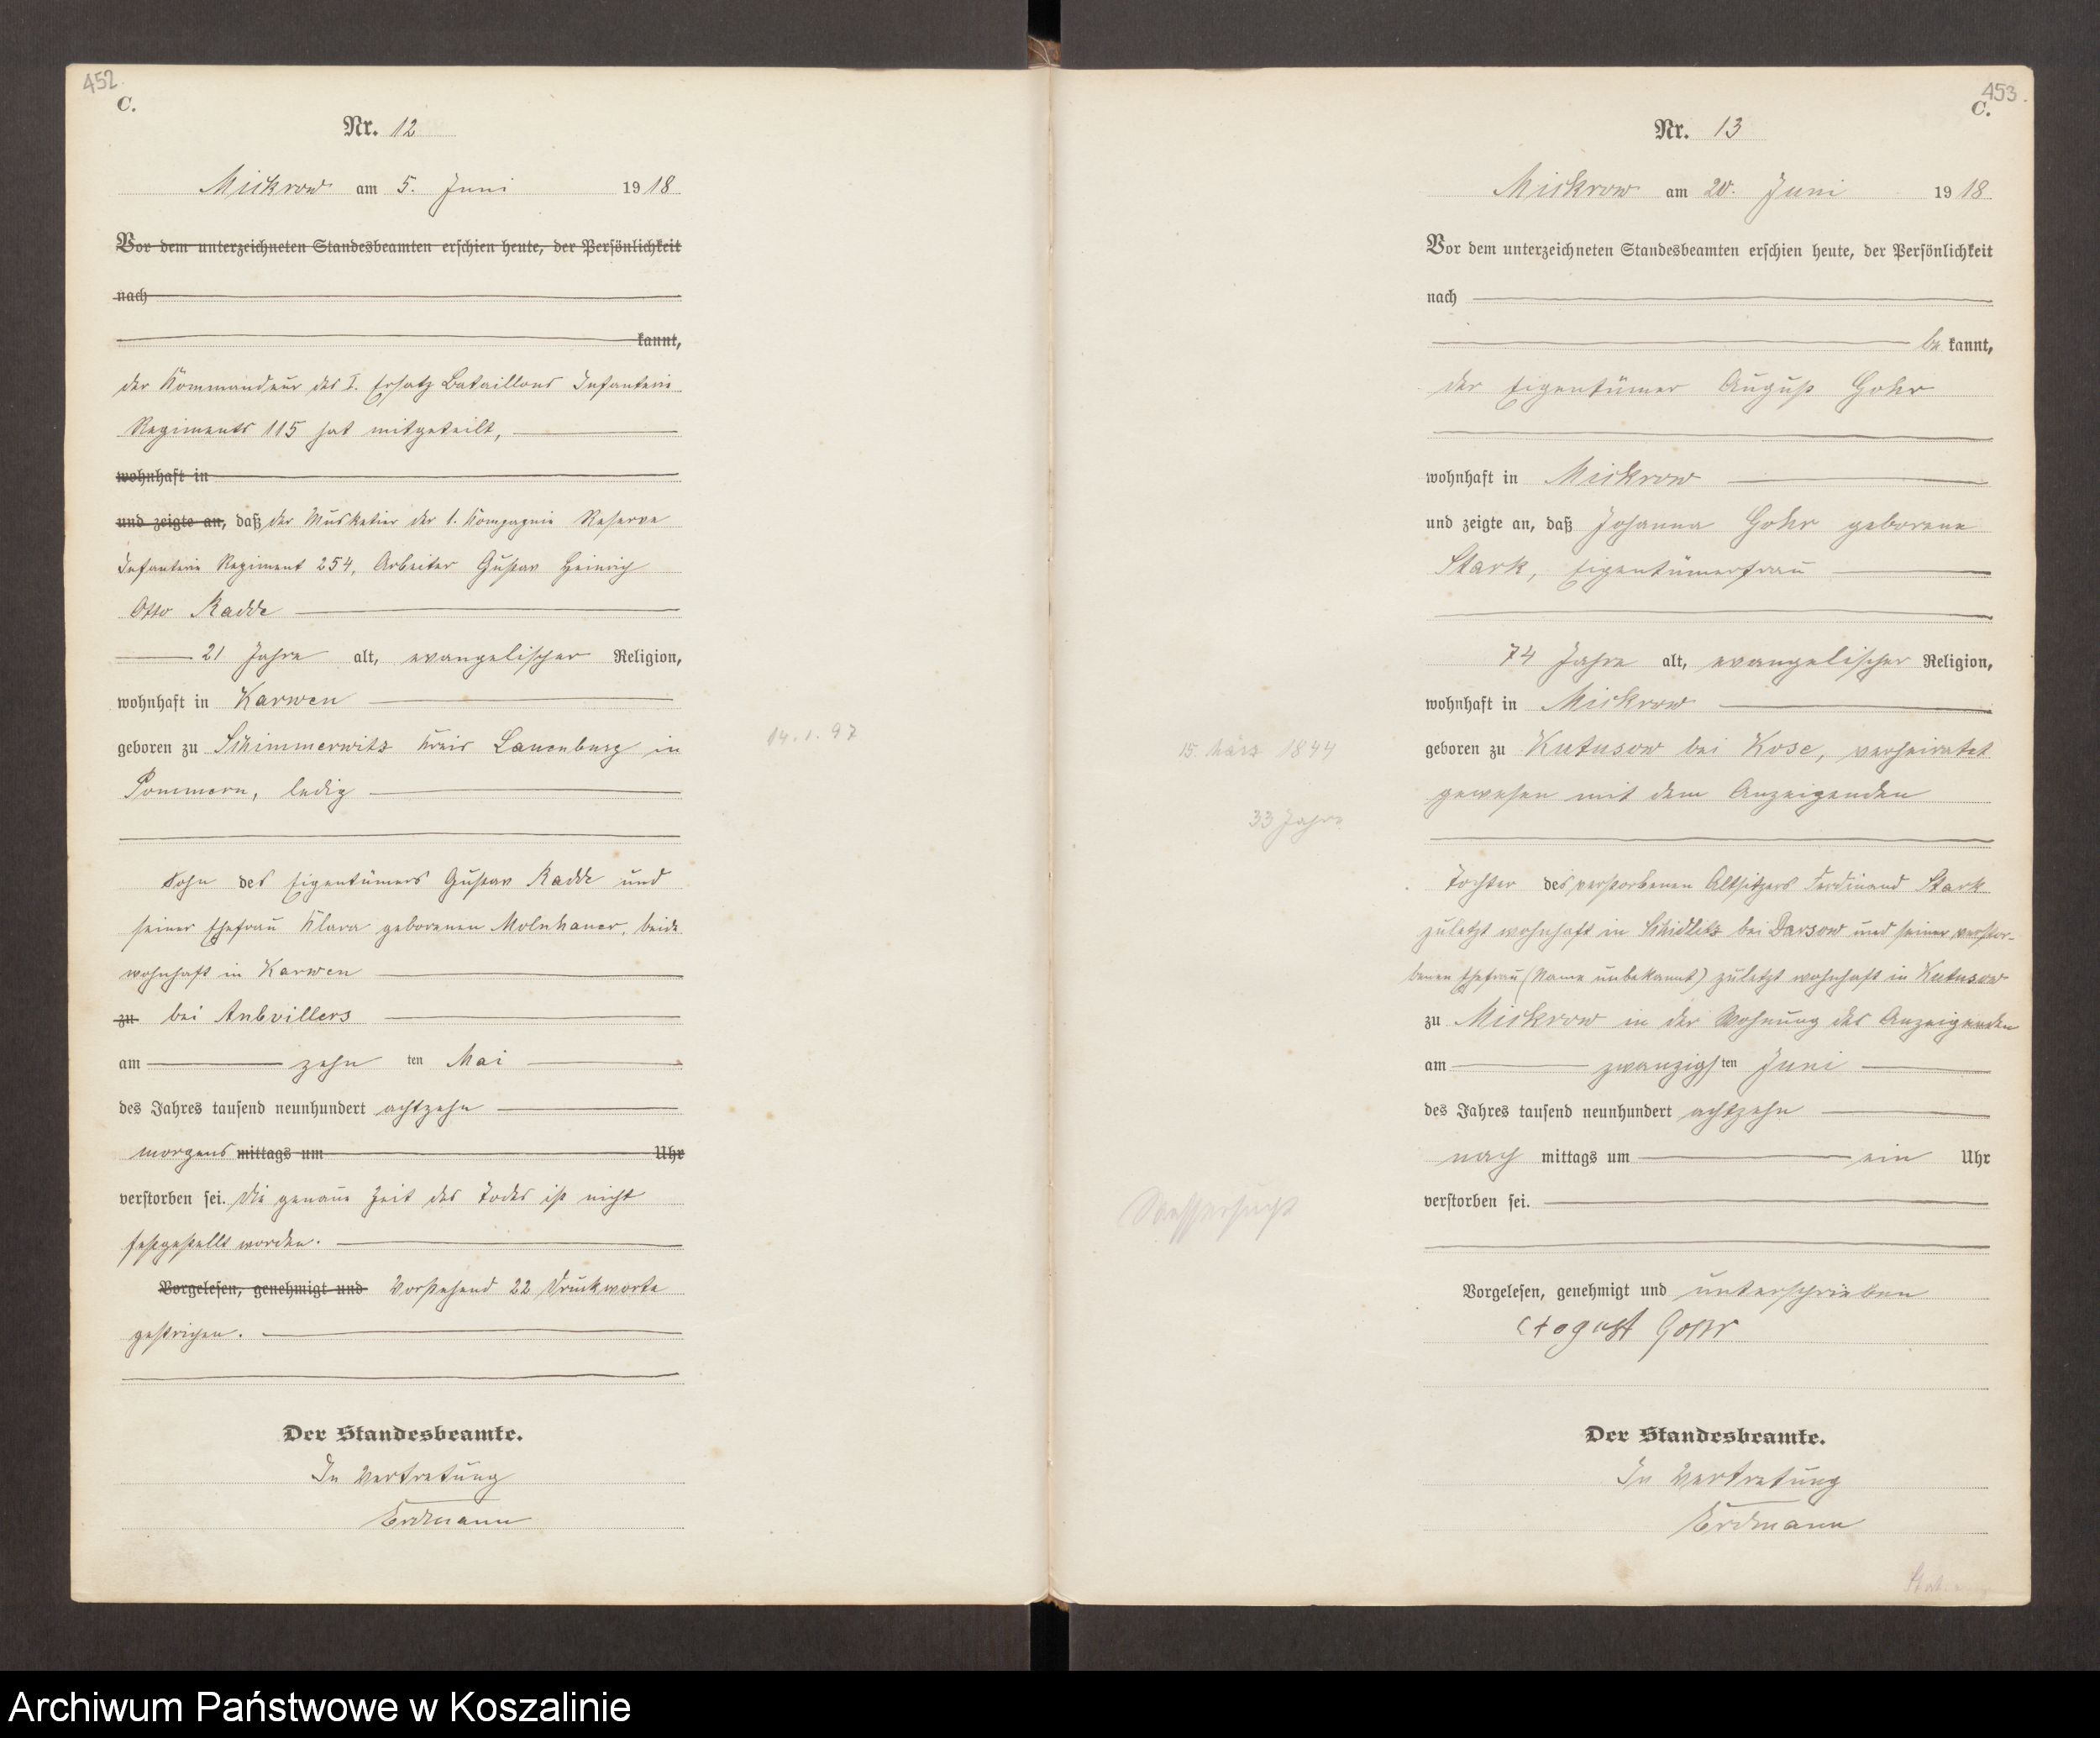 452
C.
Nr. 12
Mickrow am 5. Juni 1918
Vor dem unterzeichneten Standesbeamten erschien heute, der Persönlichkeit
nach
kannt,
der Kommandeur des I. Ersatz Bataillons Infanterie
Regiments 115 hat mitgeteilt,
wohnhaft in
und zeigte an, daß der Musketier der 1. Kompagnie Reserve
Infanterie Regiment 254, Arbeiter Gustav Heinrich
Otto Radde
21 Jahre alt, evangelischer Religion,
wohnhaft in Karwen
geboren zu Schimmerwitz Kreis Lauenburg in
Pommern, ledig
Sohn des Eigentümers Gustav Radde und
seiner Ehefrau Klara geborenen Molnhauer, beide
wohnhaft in Karwen
zu bei Anbvillers
am zehn ten Mai
des Jahres tausend neunhundert achtzehn
morgens mittags um Uhr
verstorben sei. Die genaue Zeit des Todes ist nicht
festgestellt worden.
Vorgelesen, genehmigt und Vorstehend 22 Druckworte
gestrichen.
Der Standesbeamte.
In Vertretung
Erdmann
14.1.97
453
C.
Nr. 13
Mickrow am 20. Juni 1918
Vor dem unterzeichneten Standesbeamten erschien heute, der Persönlichkeit
nach
be kannt,
der Eigentümer August Gohr
wohnhaft in Mickrow
und zeigte an, daß Johanna Gohr geborene
Stark, Eigentümerfrau
74 Jahre alt, evangelischer Religion,
wohnhaft in Mickrow
geboren zu Kutusow bei Kose, verheiratet
gewesen mit dem Anzeigenden
Tochter des verstorbenen Altsitzers Ferdinand Stark
zuletzt wohnhaft in Schidlitz bei Darsow und seiner verstor-
benen Ehefrau (Name unbekannt) zuletzt wohnhaft in Kutusow
zu Mickrow in der Wohnung des Anzeigenden
am zwanzigsten Juni
des Jahres tausend neunhundert achtzehn
nach mittags um ein Uhr
verstorben sei.
Vorgelesen, genehmigt und unterschrieben
August Gohr
Der Standesbeamte.
In Vertretung
Erdmann
15. März 1844
33 Jahre
Wassersucht
Archiwum Państwowe w Koszalinie